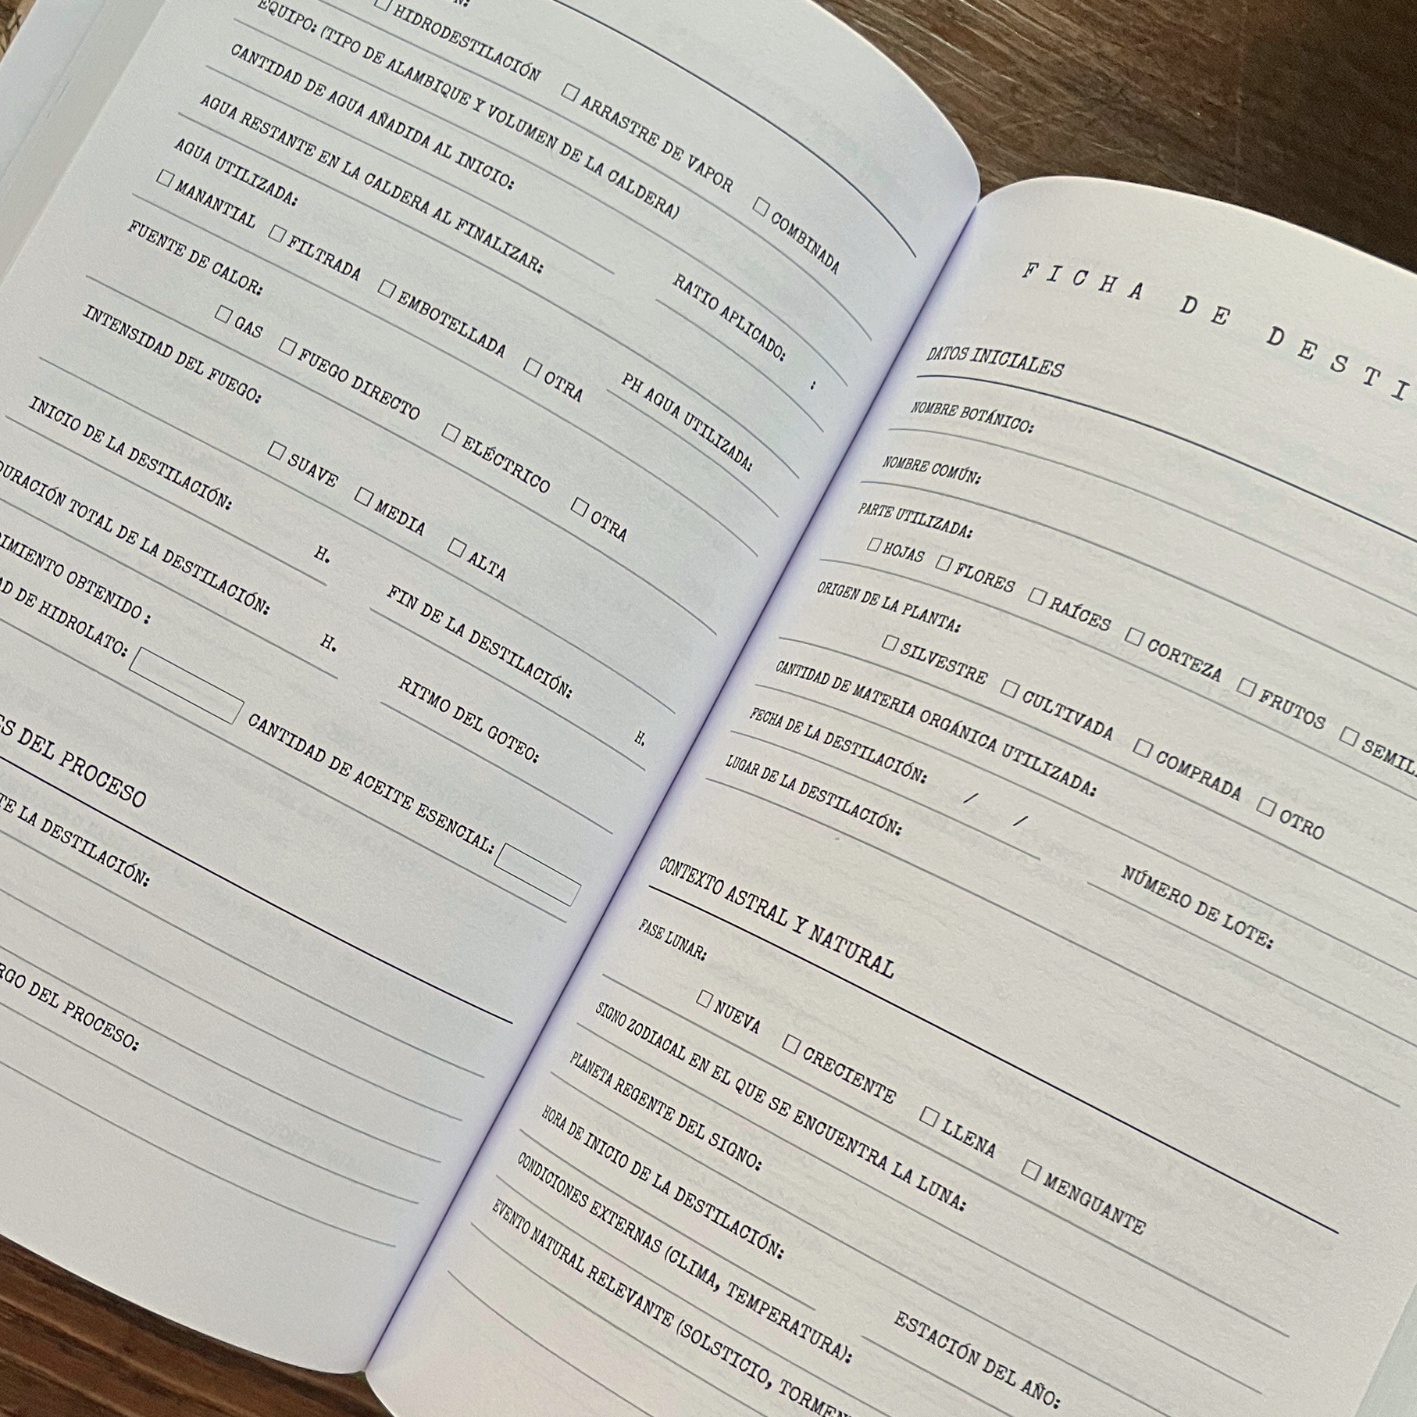 ☐ HIDRODESTILACIÓN ☐ ARRASTRE DE VAPOR ☐ COMBINADA
EQUIPO: (TIPO DE ALAMBIQUE Y VOLUMEN DE LA CALDERA)
CANTIDAD DE AGUA AÑADIDA AL INICIO:
AGUA RESTANTE EN LA CALDERA AL FINALIZAR:
RATIO APLICADO: :
AGUA UTILIZADA:
☐ MANANTIAL ☐ FILTRADA ☐ EMBOTELLADA ☐ OTRA
PH AGUA UTILIZADA:
FUENTE DE CALOR:
☐ GAS ☐ FUEGO DIRECTO ☐ ELÉCTRICO ☐ OTRA
INTENSIDAD DEL FUEGO:
☐ SUAVE ☐ MEDIA ☐ ALTA
INICIO DE LA DESTILACIÓN: H.
FIN DE LA DESTILACIÓN: H.
DURACIÓN TOTAL DE LA DESTILACIÓN: H.
RITMO DEL GOTEO:
DIMIENTO OBTENIDO :
AD DE HIDROLATO: CANTIDAD DE ACEITE ESENCIAL:
ES DEL PROCESO
TE LA DESTILACIÓN:
RGO DEL PROCESO:
FICHA DE DESTI
DATOS INICIALES
NOMBRE BOTÁNICO:
NOMBRE COMÚN:
PARTE UTILIZADA:
☐ HOJAS ☐ FLORES ☐ RAÍCES ☐ CORTEZA ☐ FRUTOS ☐ SEMIL
ORIGEN DE LA PLANTA:
☐ SILVESTRE ☐ CULTIVADA ☐ COMPRADA ☐ OTRO
CANTIDAD DE MATERIA ORGÁNICA UTILIZADA:
FECHA DE LA DESTILACIÓN: / /
NÚMERO DE LOTE:
LUGAR DE LA DESTILACIÓN:
CONTEXTO ASTRAL Y NATURAL
FASE LUNAR:
☐ NUEVA ☐ CRECIENTE ☐ LLENA ☐ MENGUANTE
SIGNO ZODIACAL EN EL QUE SE ENCUENTRA LA LUNA:
PLANETA REGENTE DEL SIGNO:
HORA DE INICIO DE LA DESTILACIÓN:
ESTACIÓN DEL AÑO:
CONDICIONES EXTERNAS (CLIMA, TEMPERATURA):
EVENTO NATURAL RELEVANTE (SOLSTICIO, TORMEN